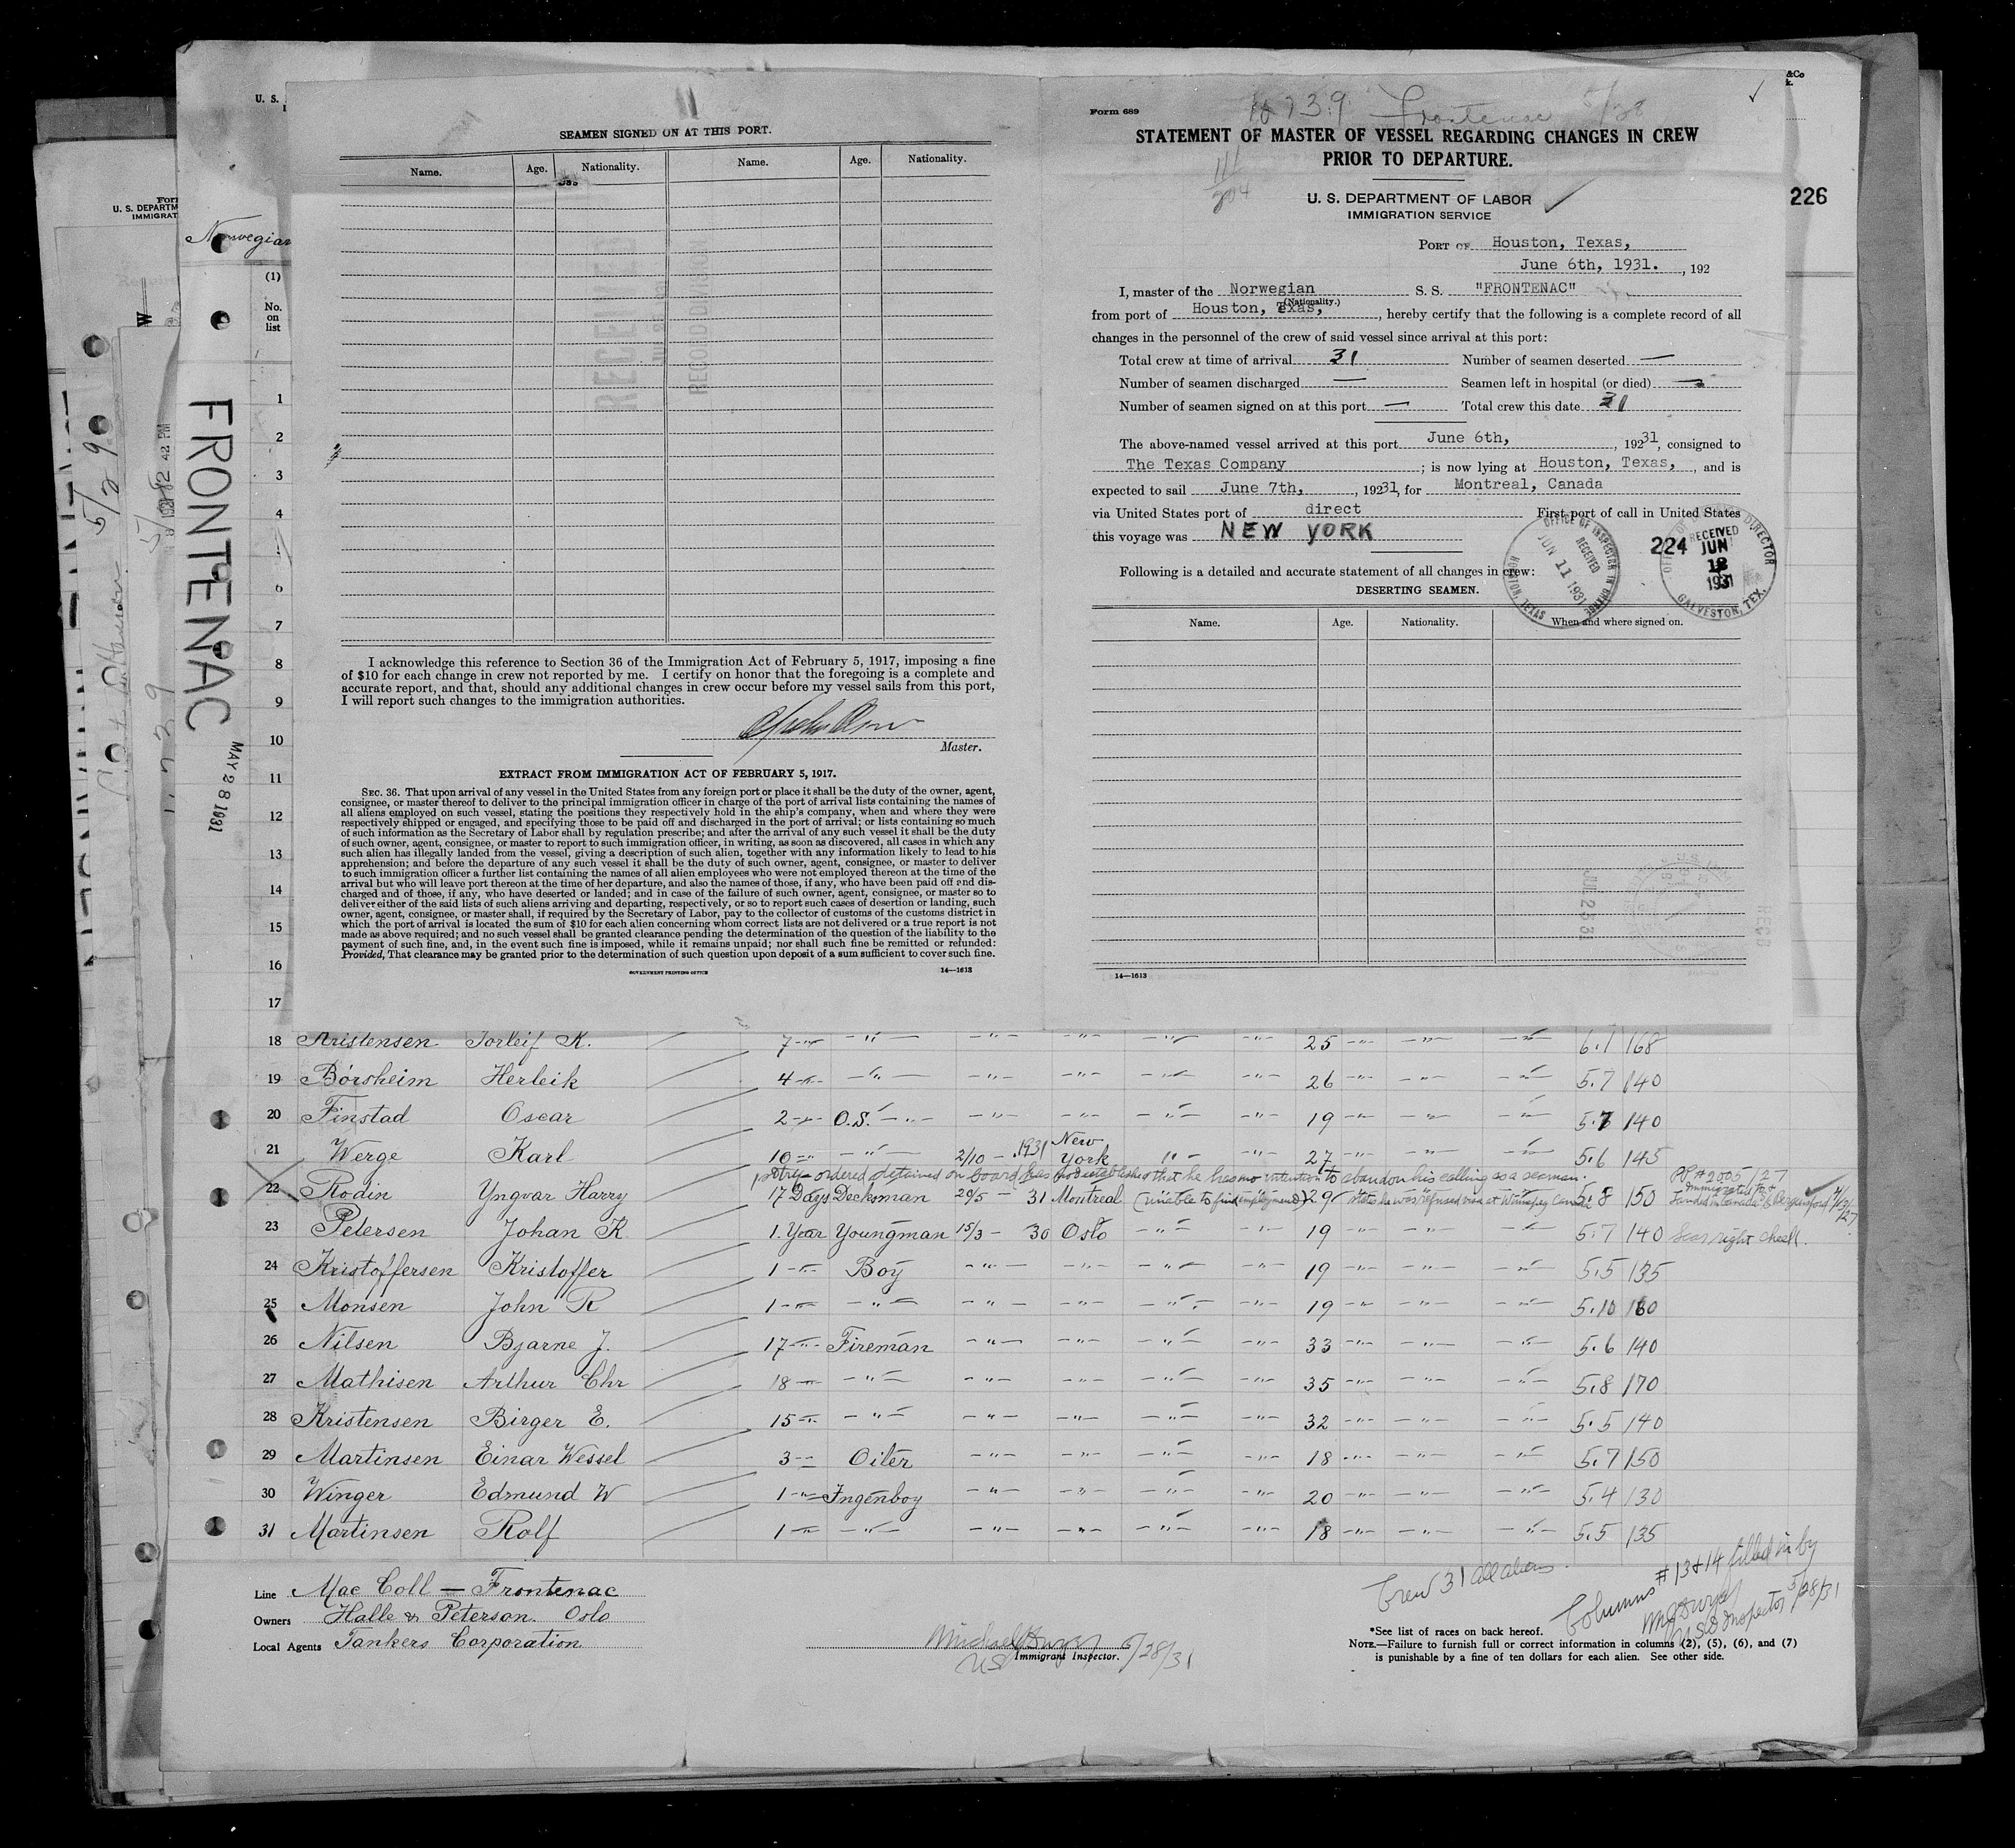 SEAMEN SIGNED ON AT THIS PORT.
Name. Age. Nationality. Name. Age. Nationality.
I acknowledge this reference to Section 36 of the Immigration Act of February 5, 1917, imposing a fine
of $10 for each change in crew not reported by me. I certify on honor that the foregoing is a complete and
accurate report, and that, should any additional changes in crew occur before my vessel sails from this port,
I will report such changes to the immigration authorities.
Master.
EXTRACT FROM IMMIGRATION ACT OF FEBRUARY 5, 1917.
SEC. 36. That upon arrival of any vessel in the United States from any foreign port or place it shall be the duty of the owner, agent,
consignee, or master thereof to deliver to the principal immigration officer in charge of the port of arrival lists containing the names of
all aliens employed on such vessel, stating the positions they respectively hold in the ship's company, when and where they were
respectively shipped or engaged, and specifying those to be paid off and discharged in the port of arrival; or lists containing so much
of such information as the Secretary of Labor shall by regulation prescribe; and after the arrival of any such vessel it shall be the duty
of such owner, agent, consignee, or master to report to such immigration officer, in writing, as soon as discovered, all cases in which any
such alien has illegally landed from the vessel, giving a description of such alien, together with any information likely to lead to his
apprehension; and before the departure of any such vessel it shall be the duty of such owner, agent, consignee, or master to deliver
to such immigration officer a further list containing the names of all alien employees who were not employed thereon at the time of the
arrival but who will leave port thereon at the time of her departure, and also the names of those, if any, who have been paid off and dis-
charged and of those, if any, who have deserted or landed; and in case of the failure of such owner, agent, consignee, or master so to
deliver either of the said lists of such aliens arriving and departing, respectively, or so to report such cases of desertion or landing, such
owner, agent, consignee, or master shall, if required by the Secretary of Labor, pay to the collector of customs of the customs district in
which the port of arrival is located the sum of $10 for each alien concerning whom correct lists are not delivered or a true report is not
made as above required; and no such vessel shall be granted clearance pending the determination of the question of the liability to the
payment of such fine, and, in the event such fine is imposed, while it remains unpaid; nor shall such fine be remitted or refunded:
Provided, That clearance may be granted prior to the determination of such question upon deposit of a sum sufficient to cover such fine.
GOVERNMENT PRINTING OFFICE 14—1613
Form 689
Frontenac 5/28
STATEMENT OF MASTER OF VESSEL REGARDING CHANGES IN CREW
PRIOR TO DEPARTURE.
U. S. DEPARTMENT OF LABOR
IMMIGRATION SERVICE
226
PORT OF Houston, Texas,
June 6th, 1931. , 192
I, master of the Norwegian S. S. "FRONTENAC"
(Nationality.)
from port of Houston, Texas, , hereby certify that the following is a complete record of all
changes in the personnel of the crew of said vessel since arrival at this port:
Total crew at time of arrival 31 Number of seamen deserted —
Number of seamen discharged — Seamen left in hospital (or died) —
Number of seamen signed on at this port — Total crew this date 31
The above-named vessel arrived at this port June 6th, , 1931, consigned to
The Texas Company ; is now lying at Houston, Texas, , and is
expected to sail June 7th, , 19231, for Montreal, Canada
via United States port of direct First port of call in United States
this voyage was NEW YORK
Following is a detailed and accurate statement of all changes in crew:
OFFICE OF INSPECTOR IN CHARGE
RECEIVED
JUN 11 1931
HOUSTON, TEXAS
224
RECEIVED
JUN
1931
GALVESTON, TEX.
DESERTING SEAMEN.
Name. Age. Nationality. When and where signed on.
JUL 25 31
14—1613
Norwegian
(1)
No.
on
list
FRONTENAC
MAY 28 1931
1
2
3
4
5
6
7
8
9
10
11
12
13
14
15
16
17
18 Kristensen Torleif K. 7 25 6.1 168
19 Börsheim Herleik 4 26 5.7 140
20 Finstad Oscar 2 O.S. 19 140
21 Werge Karl 10 2/10 - 1931 New York 27 5.6 145
ordered detained on board has not established that he has no intention to abandon his calling as a seaman.
22 Rodin Yngvar Harry 17 Days Decksman 29/5 - 31 Montreal (unable to find employment) 29 states he was refused visa at Winnipeg Canada 5.8 150
23 Petersen Johan K. 1. Year Youngman 15/3 - 30 Oslo 19 5.7 140 Scar right cheek.
24 Kristoffersen Kristoffer 1 Boy 19 5.5 135
25 Monsen John R 1 19 5.10 160
26 Nilsen Bjarne J. 17 Fireman 33 5.6 140
27 Mathisen Arthur Chr 18 35 5.8 170
28 Kristensen Birger E. 15 32 5.5 140
29 Martinsen Einar Wessel 3 Oiler 18 5.7 150
30 Winger Edmund W 1 Ingenboy 20 5.4 130
31 Martinsen Rolf 1 18 5.5 135
Crew 31 all aliens.
Columns #13 & 14 filled in by
Inspector 5/28/31
Line Mac Coll — Frontenac
Owners Halle & Peterson. Oslo
Local Agents Tankers Corporation
Immigrant Inspector. 5/28/31
*See list of races on back hereof.
NOTE.—Failure to furnish full or correct information in columns (2), (5), (6), and (7)
is punishable by a fine of ten dollars for each alien. See other side.